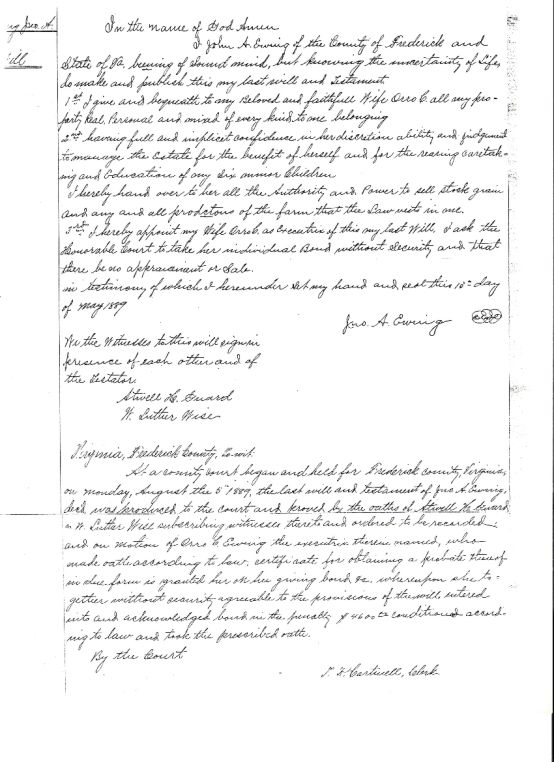 ng Jno. A.
ill
In the name of God Amen
I John A. Ewing of the County of Frederick and
State of Va, beeing of Sound mind, but knowing the uncertainty of Life,
do make and publish this my last will and Testament
1st I give and bequeath to my Beloved and faithfull Wife Orra C. all my pro-
perty Real, Personal and mixed of every kind to me belonging
2nd having full and implicit confidence in her discretion ability and judgment
to manage the Estate for the benefit of herself and for the rearing caretak-
ing and Education of my Six minor Children
I hereby hand over to her all the Authority and Power to sell stock grain
and any and all productions of the farm that the Law vests in me.
3rd I hereby appoint my Wife Orra C. as Executrix of this my last Will, I ask the
Honorable Court to take her individual Bond without Security and that
there be no appraisement or Sale.
in testimony of which I hereunder Set my hand and seal this 10th day
of May 1889
Jno. A. Ewing
We the Witnesses to this will sign in
presence of each other and of
the Testator.
Atwell H. Guard
W. Luther Wise
Virginia, Frederick County, To wit:
At a county court began and held for Frederick county, Virginia,
on Monday, August the 5th 1889, the last will and testament of Jno A. Ewing,
decd was produced to the court and proved by the oaths of Atwell H. Guard
W. Luther Wise subscribing witnesses thereto and ordered to be recorded
and on motion of Orra C. Ewing the executrix therein named, who
made oath according to law, certificate for obtaining a probate thereof
in due form is granted her on her giving bond &c. whereupon she to-
gether without security agreeable to the provisions of the will entered
into and acknowledged bond in the penalty $4600 conditioned accord-
ing to law and took the prescribed oath.
By the Court
Cartmell, Clerk